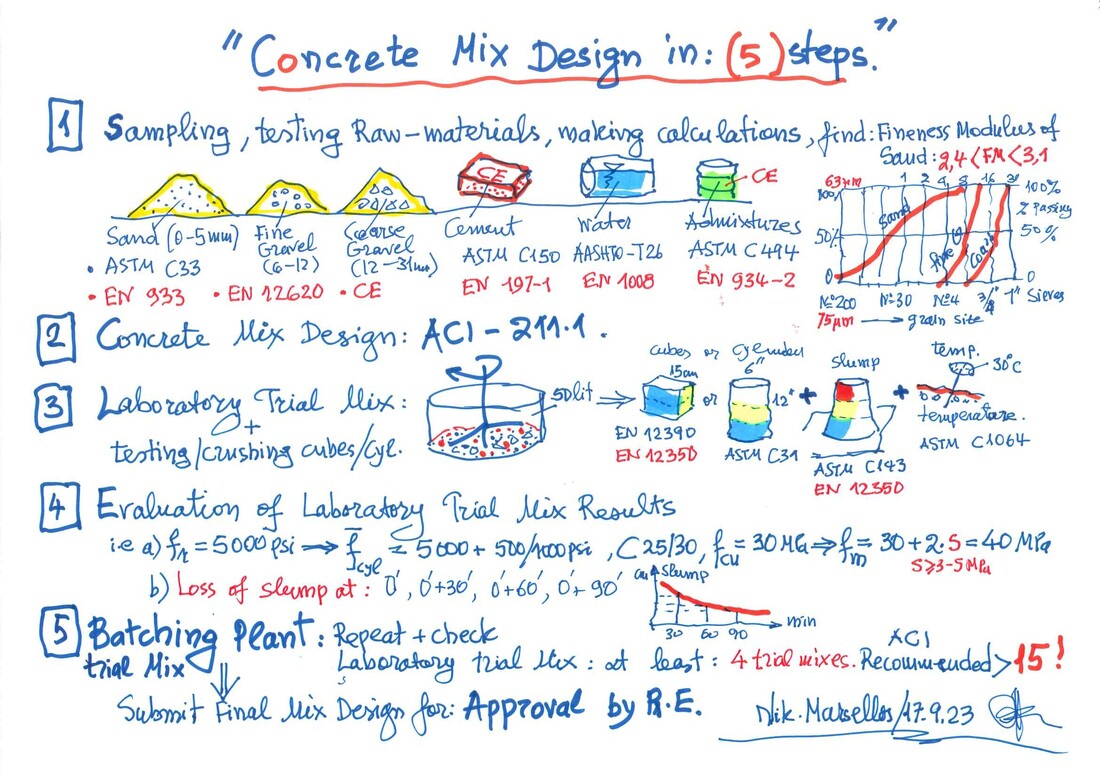 "Concrete Mix Design in: (5) steps."
1 Sampling, testing Raw-materials, making calculations, find: Fineness Modulus of
Sand: 2,4 < FM < 3,1
CE
CE
Sand (0-5mm)
• ASTM C33
• EN 933
Fine
Gravel
(6-12)
• EN 12620
Coarse
Gravel
(12-31mm)
• CE
Cement
ASTM C150
EN 197-1
Water
AASHTO-T26
EN 1008
Admixtures
ASTM C494
EN 934-2
63μm 1 2 4 8 16 31
100% 100%
% Passing
50% 50%
0 0
Sand
fine G
Coarse
Nº200 Nº30 Nº4 3/8" 1" Sieves
75μm → grain size
2 Concrete Mix Design: ACI-211.1.
3 Laboratory Trial Mix:
+
testing/crushing cubes/cyl.
50lit
cubes or Cylinder
15cm
6"
or
12"
EN 12390
EN 12350
ASTM C31
+
slump
ASTM C143
EN 12350
+
temp.
30°C
temperature.
ASTM C1064
4 Evaluation of Laboratory Trial Mix Results
i.e a) = 5000 psi → = 5000 + 500/1000psi, C25/30, fcu = 30 MPa ⇒ fm = 30+2.5 = 40 MPa
S≥3-5MPa
b) Loss of slump at: 0', 0'+30', 0'+60', 0'+90'
cm slump
30 60 90
min
5 Batching Plant: Repeat + check
trial Mix
Laboratory trial Mix: at least: 4 trial mixes. ACI Recommended > 15!
Submit Final Mix Design for: Approval by R.E.
Nik. Marsellos/17.9.23